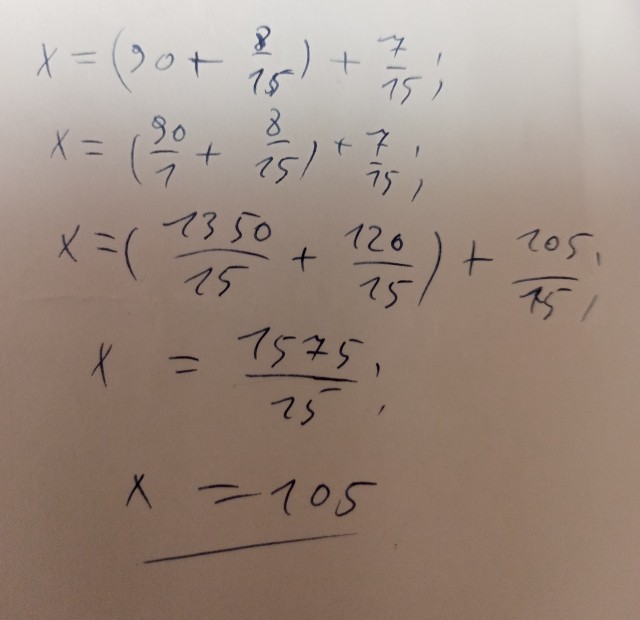 x = (90 + 8/15) + 7/15;
x = (90/1 + 8/15) + 7/15;
x = (1350/15 + 120/15) + 105/15;
x = 1575/15;
x = 105